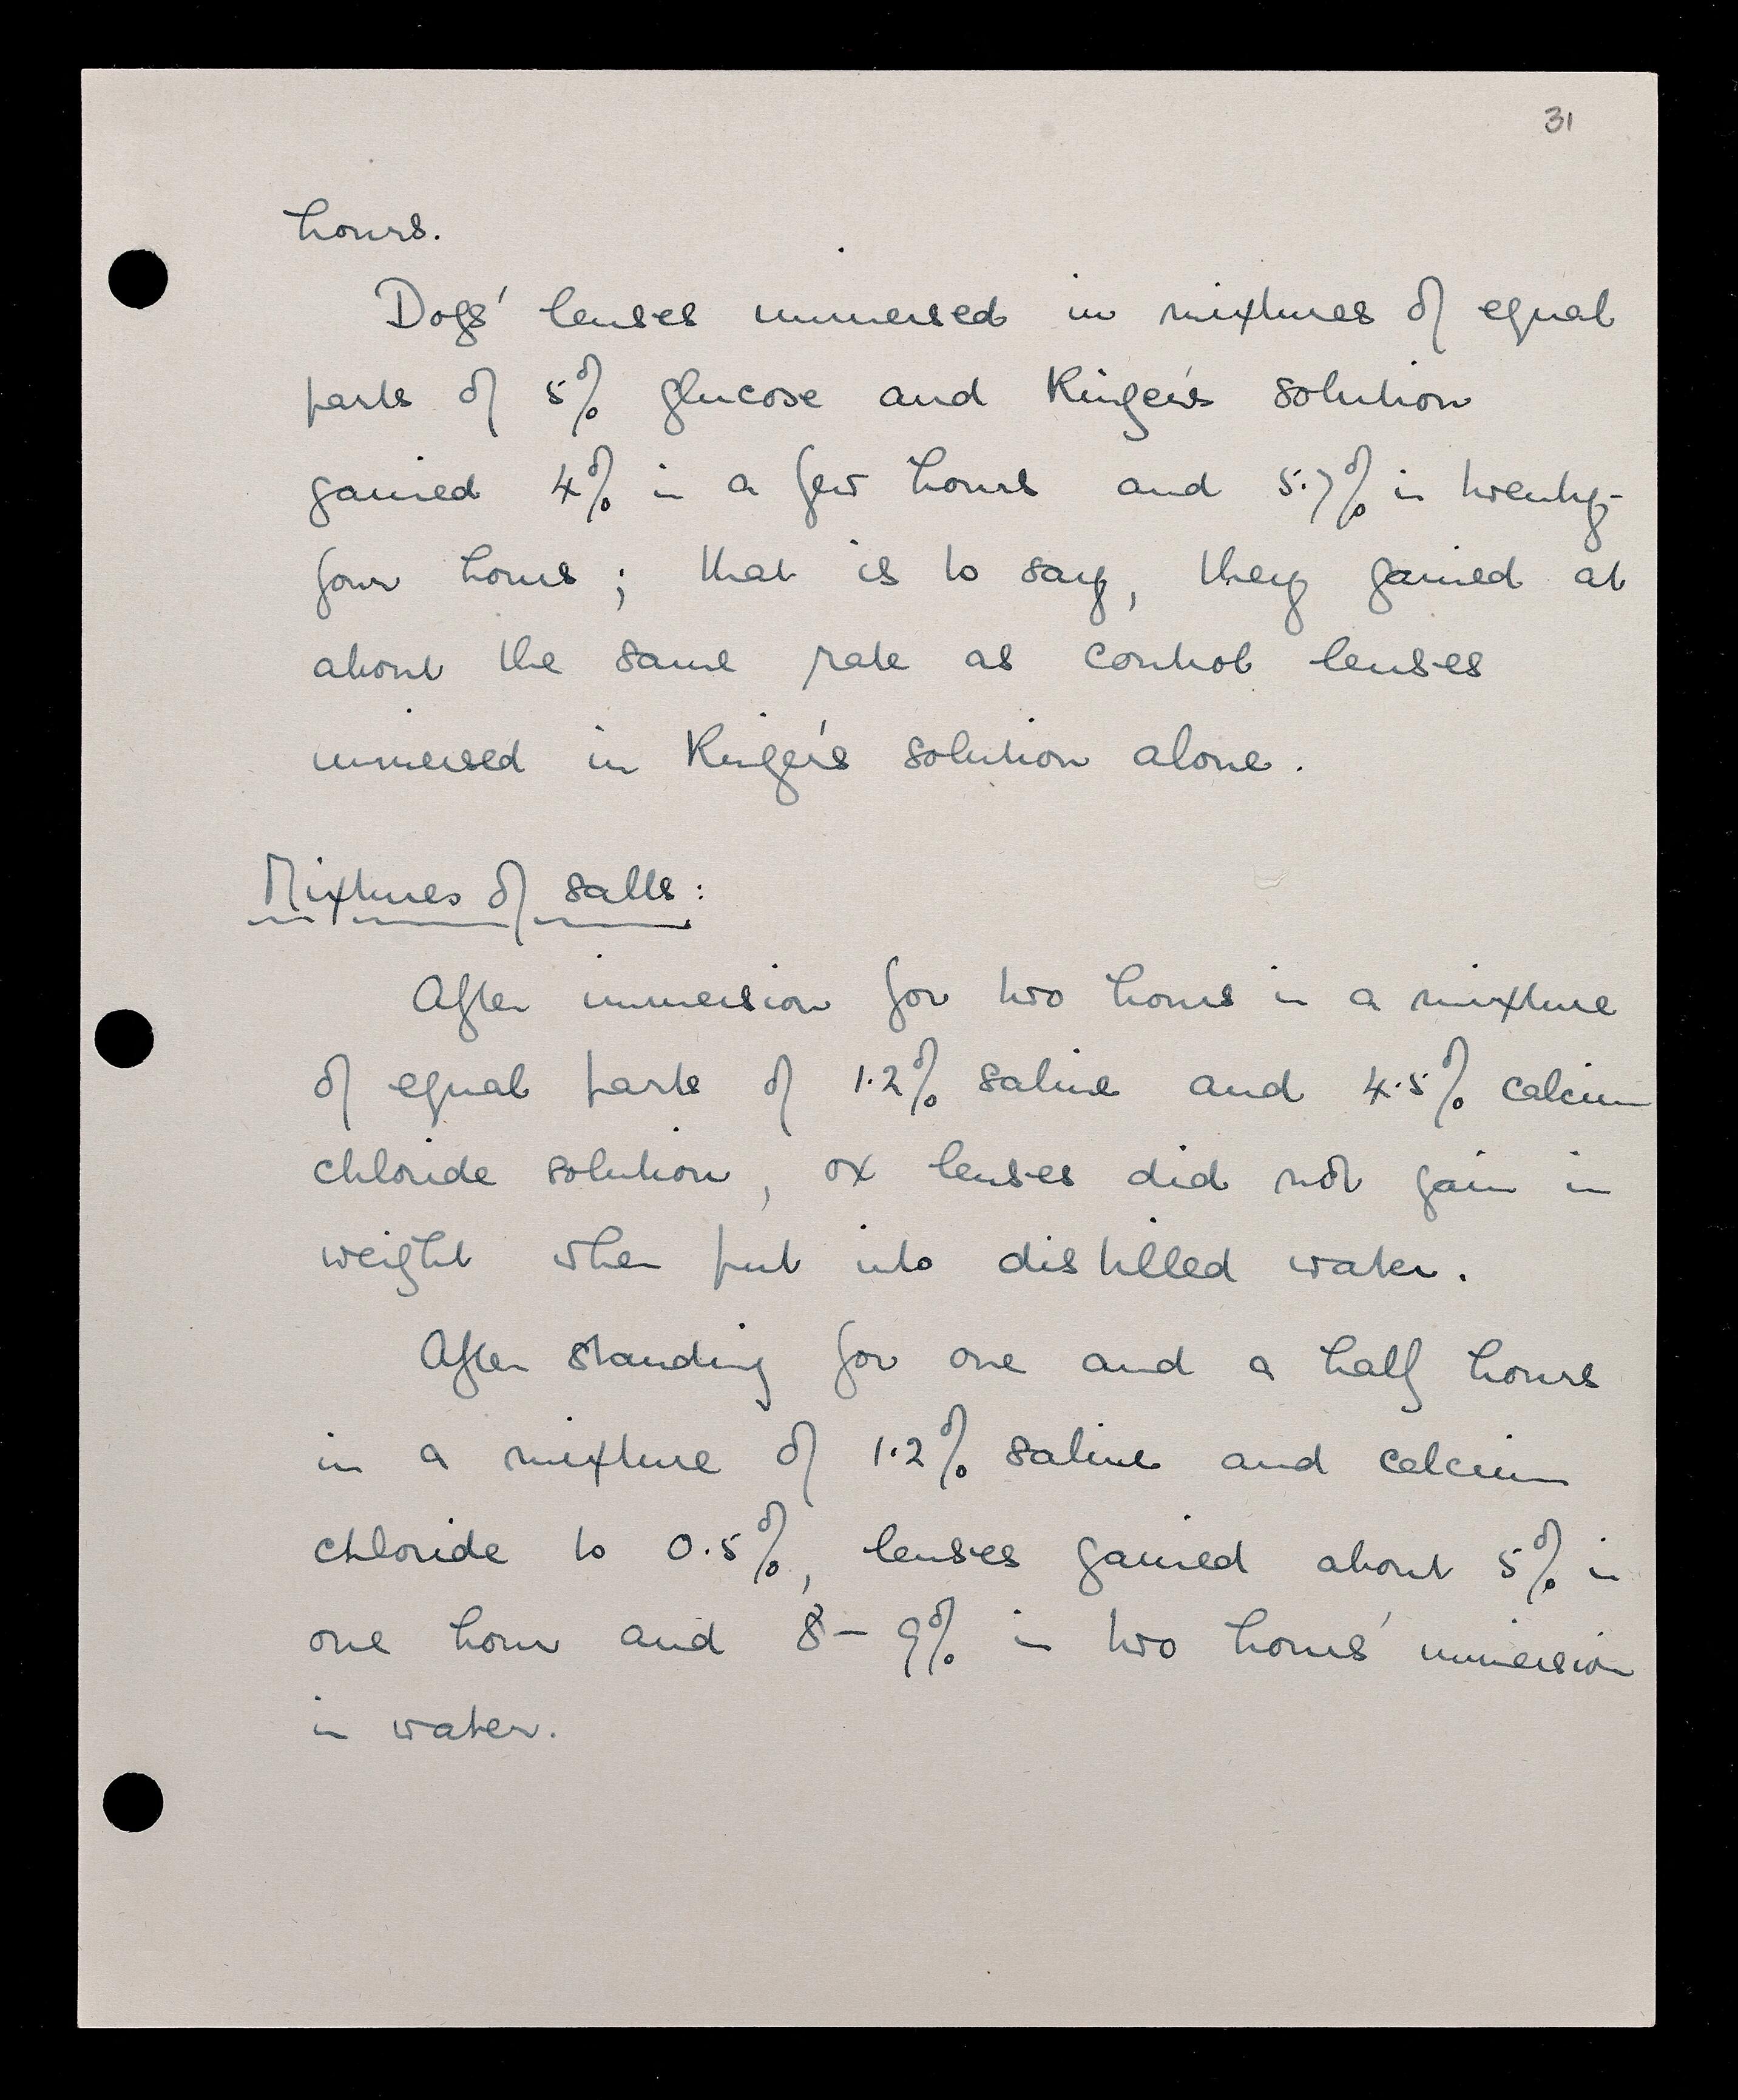 31
hours.
Dogs' lenses immersed in mixtures of equal
parts of 5% glucose and Ringer's solution
gained 4% in a few hours and 5.7% in twenty-
four hours; that is to say, they gained at
about the same rate as control lenses
immersed in Ringer's solution alone.
Mixtures of salts:
After immersion for two hours in a mixture
of equal parts of 1.2% saline and 4.5% calcium
chloride solution, ox lenses did not gain in
weight when put into distilled water.
After standing for one and a half hours
in a mixture of 1.2% saline and calcium
chloride to 0.5%, lenses gained about 5% in
one hour and 8-9% in two hours' immersion
in water.